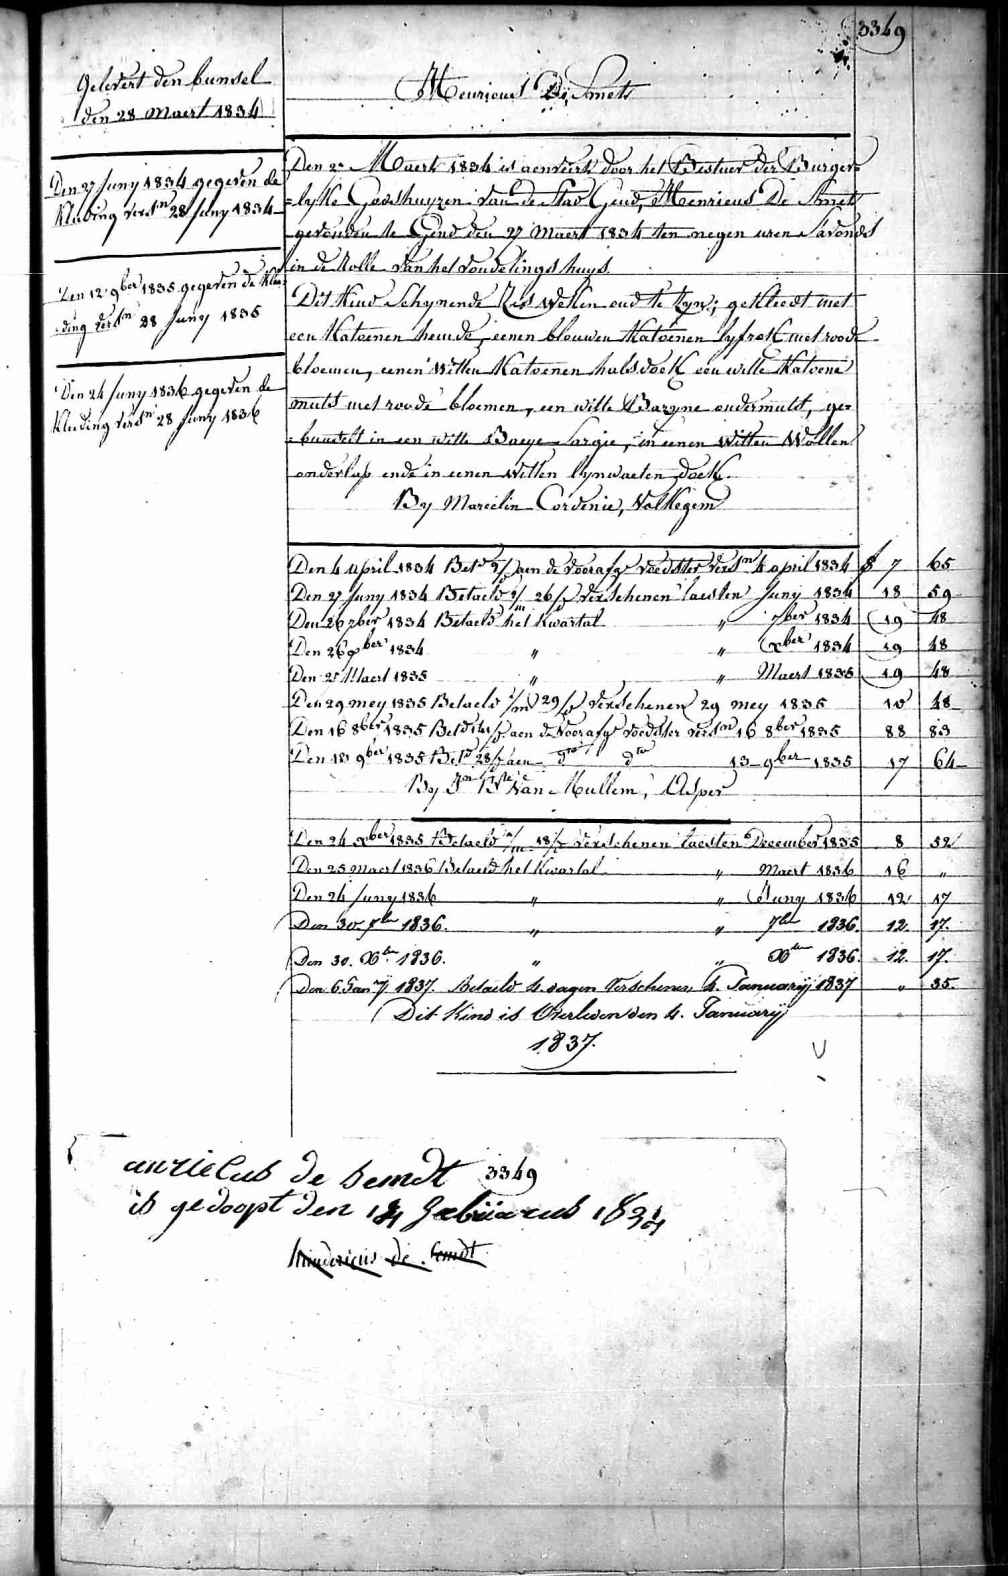 3369
Gelevert den bunsel
den 28 Maert 1834
Henricus De Smets
Den 27 Juny 1834 gegeven de
Kleeding versn 28 Juny 1834
Den 12 9ber 1835 gegeven de Klee
ding versn 28 Juny 1835
Den 24 Juny 1836 gegeven de
Kleeding versn 28 Juny 1836
Den Maert 1834 is aenveerd door het Bestuer der Burger=
=lyke Godshuyzen van de Stad Gend, Henricus De Smet
gevonden te Gend den 27 Maert 1834 ten negen uren S'avonds
in de Rolle van het vondelings huys.
Dit Kind Schynende Zes weken oud te Zyn; gekleedt met
een Katoenen hemde, eenen blouwen Katoenen lyfrok met roode
bloemen, eenen witten Katoenen halsdoek een witte Katoene
muts met roode bloemen, een witte Bazyne ondermuts, ge=
=bunselt in een witte Baeye Sargie, in eenen Witten Wollen
onderlap ende in eenen witten lynwaeten doek.
By Marcelin Cordenie, Volkegem
Den 4 april 1834 Betd aen de voorafge voedster versn 4 april 1834 f 7 65
Den 27 Juny 1834 Betaeld 26/ verschenen laesten Juny 1834 18 59
Den 26 7ber 1834 Betaeld het Kwartal " 7ber 1834 19 48
Den 26 9ber 1834 " " Xber 1834 19 48
Den 25 Maert 1835 " " Maert 1835 19 48
Den 29 mey 1835 Betaeld 29/ verschenen 29 mey 1835 10 48
Den 16 8ber 1835 Betd aen de voorafge voedster versn 16 8ber 1835 88 83
Den 13 9ber 1835 Betd 28/ aen dto dto 13 9ber 1835 17 64
By Van Mullem, Asper
Den 24 Xber 1835 Betaeld 18/ verschenen laesten December 1835 8 52
Den 25 Maert 1836 Betaeld het Kwartal " Maert 1836 16 "
Den 24 Juny 1836 " " Juny 1836 12 17
Den 30. 7ber 1836. " " 7ber 1836. 12. 17.
Den 30. Xber 1836. " " Xber 1836. 12 17.
Den 6. Janry 1837. Betaeld 4. dagen Verschenen 4. Januarij 1837 " 35.
Dit Kind is Overleden den 4. Januarij
1837.
anrielus de Semdt 3369
is gedoopt den 14 Febuarus 1834
de Semdt